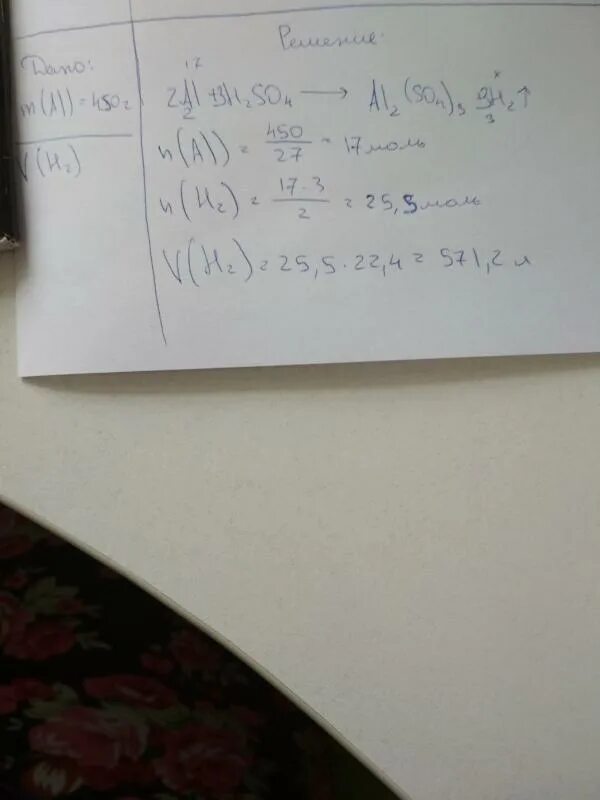 Дано:
m(Al) = 450 г
V(H₂)
Решение:
17 x
2Al + 3H₂SO₄ → Al₂(SO₄)₃ + 3H₂↑
2 3
n(Al) = 450/27 = 17 моль
n(H₂) = 17·3/2 = 25,5 моль
V(H₂) = 25,5·22,4 = 571,2 л